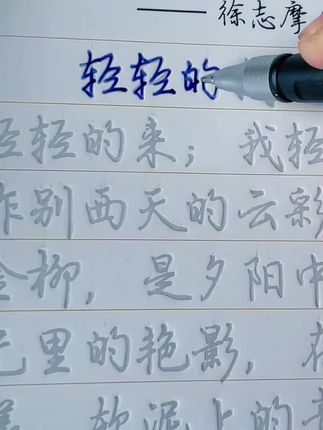 ——徐志摩
轻轻的
轻轻的来；我轻
作别西天的云彩
金柳，是夕阳中
里的艳影，在
软泥上的青